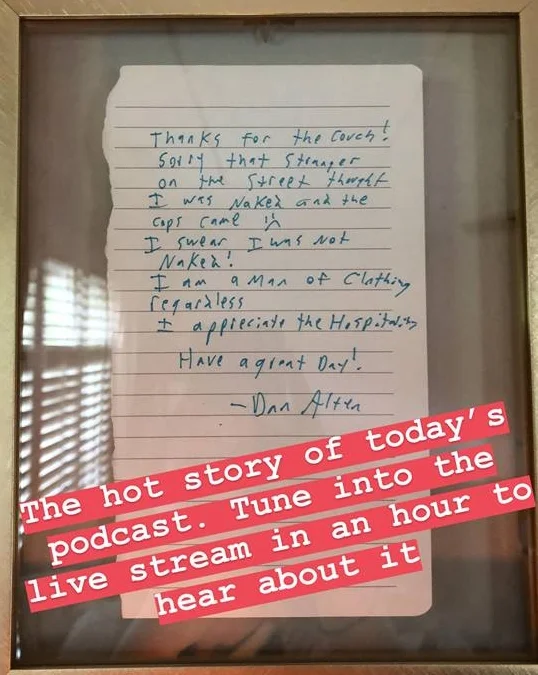 Thanks for the Couch!
Sorry that Stranger
on the Street thought
I was Naked and the
Cops Came
I swear I was Not
Naked!
I am a Man of Clothing
regardless
I appreciate the Hospitality
Have a great Day!
- Dan Alten
The hot story of today's
podcast. Tune into the
live stream in an hour to
hear about it